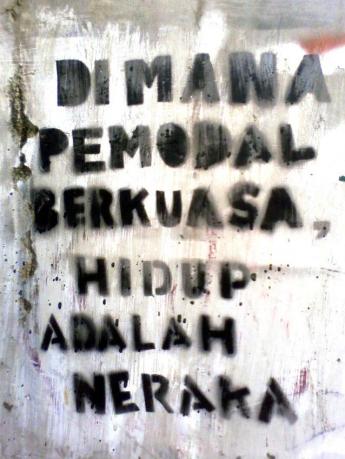 DIMANA
PEMODAL
BERKUASA,
HIDUP
ADALAH
NERAKA